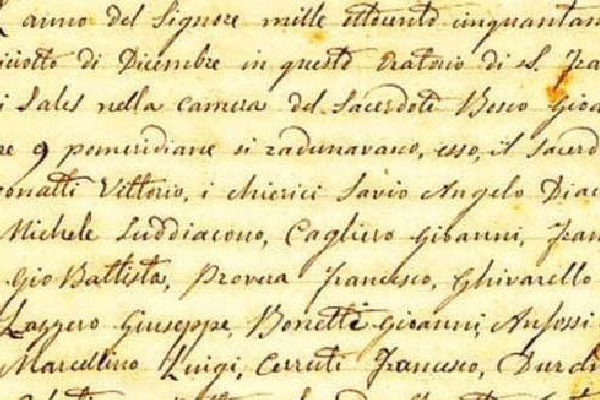 anno del Signore mille ottocento cinquantan
di Dicembre in questo Oratorio di S. Fra
i Sales nella camera del Sacerdote Bosco Gioa
re 9 pomeridiane si radunavano, esso, il Sacerd
Vittorio, i chierici Savio Angelo Diac
Michele Suddiacono, Cagliero Giovanni, Fran
Gio Battista, Provera Francesco, Ghivarello
Lazzero Giuseppe, Bonetti Giovanni, Anfossi
Marcellino Luigi, Cerruti Francesco, Duran